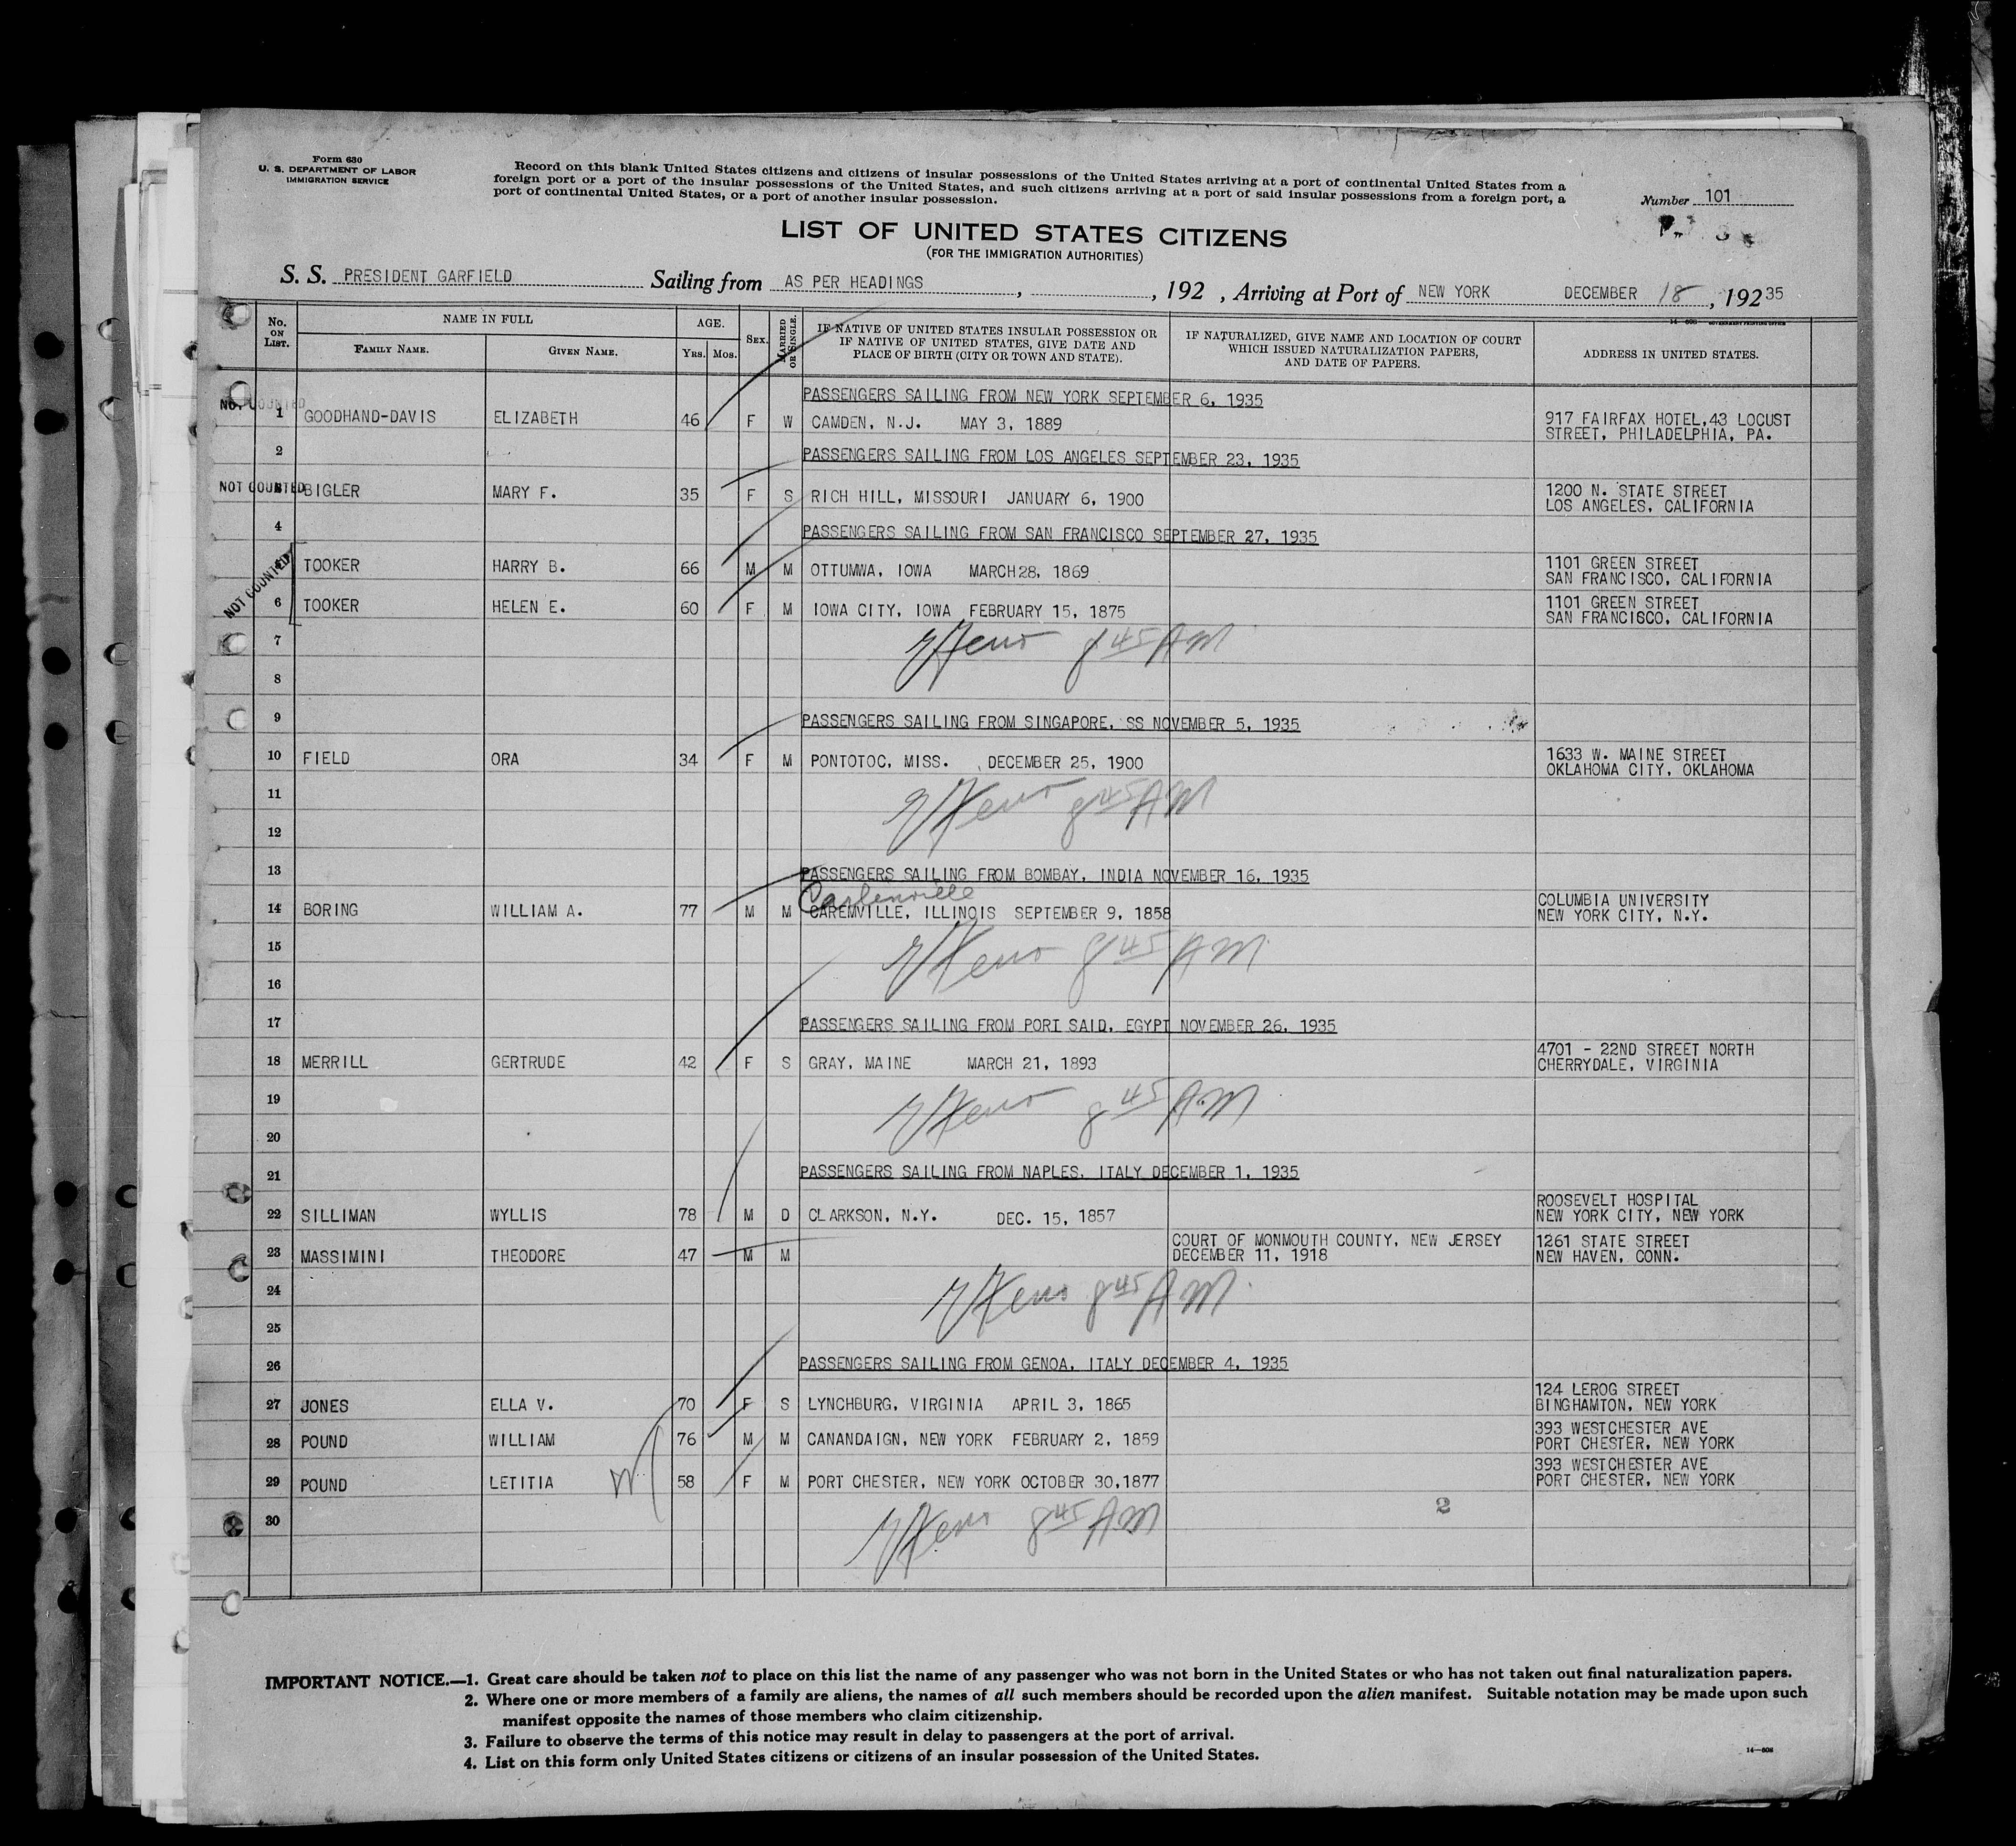 Form 630
U. S. DEPARTMENT OF LABOR
IMMIGRATION SERVICE
Record on this blank United States citizens and citizens of insular possessions of the United States arriving at a port of continental United States from a
foreign port or a port of the insular possessions of the United States, and such citizens arriving at a port of said insular possessions from a foreign port, a
port of continental United States, or a port of another insular possession.
Number 101
LIST OF UNITED STATES CITIZENS
(FOR THE IMMIGRATION AUTHORITIES)
S. S. PRESIDENT GARFIELD Sailing from AS PER HEADINGS , , 192 , Arriving at Port of NEW YORK DECEMBER 18 , 192 35
14—608 GOVERNMENT PRINTING OFFICE
No. ON LIST. NAME IN FULL FAMILY NAME. GIVEN NAME. AGE. YRS. MOS. SEX. MARRIED OR SINGLE.
IF NATIVE OF UNITED STATES INSULAR POSSESSION OR
IF NATIVE OF UNITED STATES, GIVE DATE AND
PLACE OF BIRTH (CITY OR TOWN AND STATE).
IF NATURALIZED, GIVE NAME AND LOCATION OF COURT
WHICH ISSUED NATURALIZATION PAPERS,
AND DATE OF PAPERS.
ADDRESS IN UNITED STATES.
PASSENGERS SAILING FROM NEW YORK SEPTEMBER 6, 1935
NOT COUNTED
1 GOODHAND-DAVIS ELIZABETH 46 F W CAMDEN, N.J. MAY 3, 1889 917 FAIRFAX HOTEL, 43 LOCUST
STREET, PHILADELPHIA, PA.
2 PASSENGERS SAILING FROM LOS ANGELES SEPTEMBER 23, 1935
NOT COUNTED BIGLER MARY F. 35 F S RICH HILL, MISSOURI JANUARY 6, 1900 1200 N. STATE STREET
LOS ANGELES, CALIFORNIA
4 PASSENGERS SAILING FROM SAN FRANCISCO SEPTEMBER 27, 1935
NOT COUNTED
TOOKER HARRY B. 66 M M OTTUMWA, IOWA MARCH 28, 1869 1101 GREEN STREET
SAN FRANCISCO, CALIFORNIA
6 TOOKER HELEN E. 60 F M IOWA CITY, IOWA FEBRUARY 15, 1875 1101 GREEN STREET
SAN FRANCISCO, CALIFORNIA
7 8 45 AM
8
9 PASSENGERS SAILING FROM SINGAPORE, SS NOVEMBER 5, 1935
10 FIELD ORA 34 F M PONTOTOC, MISS. DECEMBER 25, 1900 1633 W. MAINE STREET
OKLAHOMA CITY, OKLAHOMA
11 8 45 AM
12
13 PASSENGERS SAILING FROM BOMBAY, INDIA NOVEMBER 16, 1935
Carlinville
14 BORING WILLIAM A. 77 M M CAREMVILLE, ILLINOIS SEPTEMBER 9, 1858 COLUMBIA UNIVERSITY
NEW YORK CITY, N.Y.
15 8 45 AM
16
17 PASSENGERS SAILING FROM PORT SAID, EGYPT NOVEMBER 26, 1935
18 MERRILL GERTRUDE 42 F S GRAY, MAINE MARCH 21, 1893 4701 - 22ND STREET NORTH
CHERRYDALE, VIRGINIA
19 8 45 A.M
20
21 PASSENGERS SAILING FROM NAPLES, ITALY DECEMBER 1, 1935
22 SILLIMAN WYLLIS 78 M D CLARKSON, N.Y. DEC. 15, 1857 ROOSEVELT HOSPITAL
NEW YORK CITY, NEW YORK
23 MASSIMINI THEODORE 47 M M COURT OF MONMOUTH COUNTY, NEW JERSEY
DECEMBER 11, 1918 1261 STATE STREET
NEW HAVEN, CONN.
24 8 45 AM
25
26 PASSENGERS SAILING FROM GENOA, ITALY DECEMBER 4, 1935
27 JONES ELLA V. 70 F S LYNCHBURG, VIRGINIA APRIL 3, 1865 124 LEROG STREET
BINGHAMTON, NEW YORK
28 POUND WILLIAM 76 M M CANANDAIGN, NEW YORK FEBRUARY 2, 1859 393 WESTCHESTER AVE
PORT CHESTER, NEW YORK
29 POUND LETITIA 58 F M PORT CHESTER, NEW YORK OCTOBER 30,1877 393 WESTCHESTER AVE
PORT CHESTER, NEW YORK
2
30 8 45 AM
IMPORTANT NOTICE.—1. Great care should be taken not to place on this list the name of any passenger who was not born in the United States or who has not taken out final naturalization papers.
2. Where one or more members of a family are aliens, the names of all such members should be recorded upon the alien manifest. Suitable notation may be made upon such
manifest opposite the names of those members who claim citizenship.
3. Failure to observe the terms of this notice may result in delay to passengers at the port of arrival.
4. List on this form only United States citizens or citizens of an insular possession of the United States.
14—608